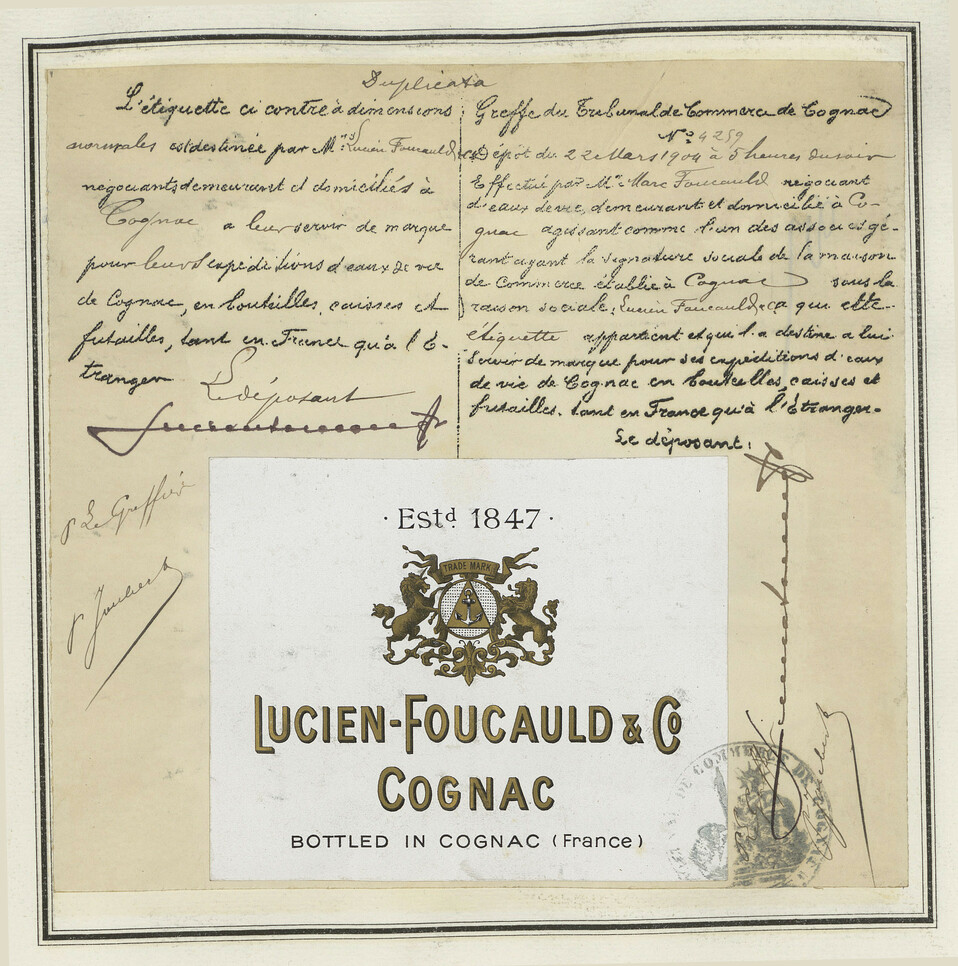 Duplicata
L'étiquette ci contre à dimensions
normales est destinée par M.rs Lucien Foucauld & Co
négociants demeurant et domiciliés à
Cognac a leur servir de marque
pour leurs expéditions d'eaux de vie
de Cognac, en bouteilles, caisses et
futailles, tant en France qu'à l'É-
tranger
Le déposant
p Le Greffier
Greffe du Tribunal de Commerce de Cognac
No 4259
Dépôt du 22 Mars 1904 à 5 heures du soir
Effectué par Mr Marc Foucauld négociant
d'eaux de vie, demeurant et domicilié à Co-
gnac agissant comme l'un des associés gé-
rant ayant la signature sociale de la maison
de Commerce établie à Cognac sous la
raison sociale: Lucien Foucauld & Ca qui cette
étiquette appartient et qui l'a destine a lui
Servir de marque pour ses expéditions d'eaux
de vie de Cognac en bouteilles, caisses et
futailles, tant en France qu'à l'Étranger.
Le déposant:
· Estd 1847 ·
TRADE MARK
LUCIEN-FOUCAULD & Co
COGNAC
BOTTLED IN COGNAC (France)
DE COMMERCE DE COGNAC